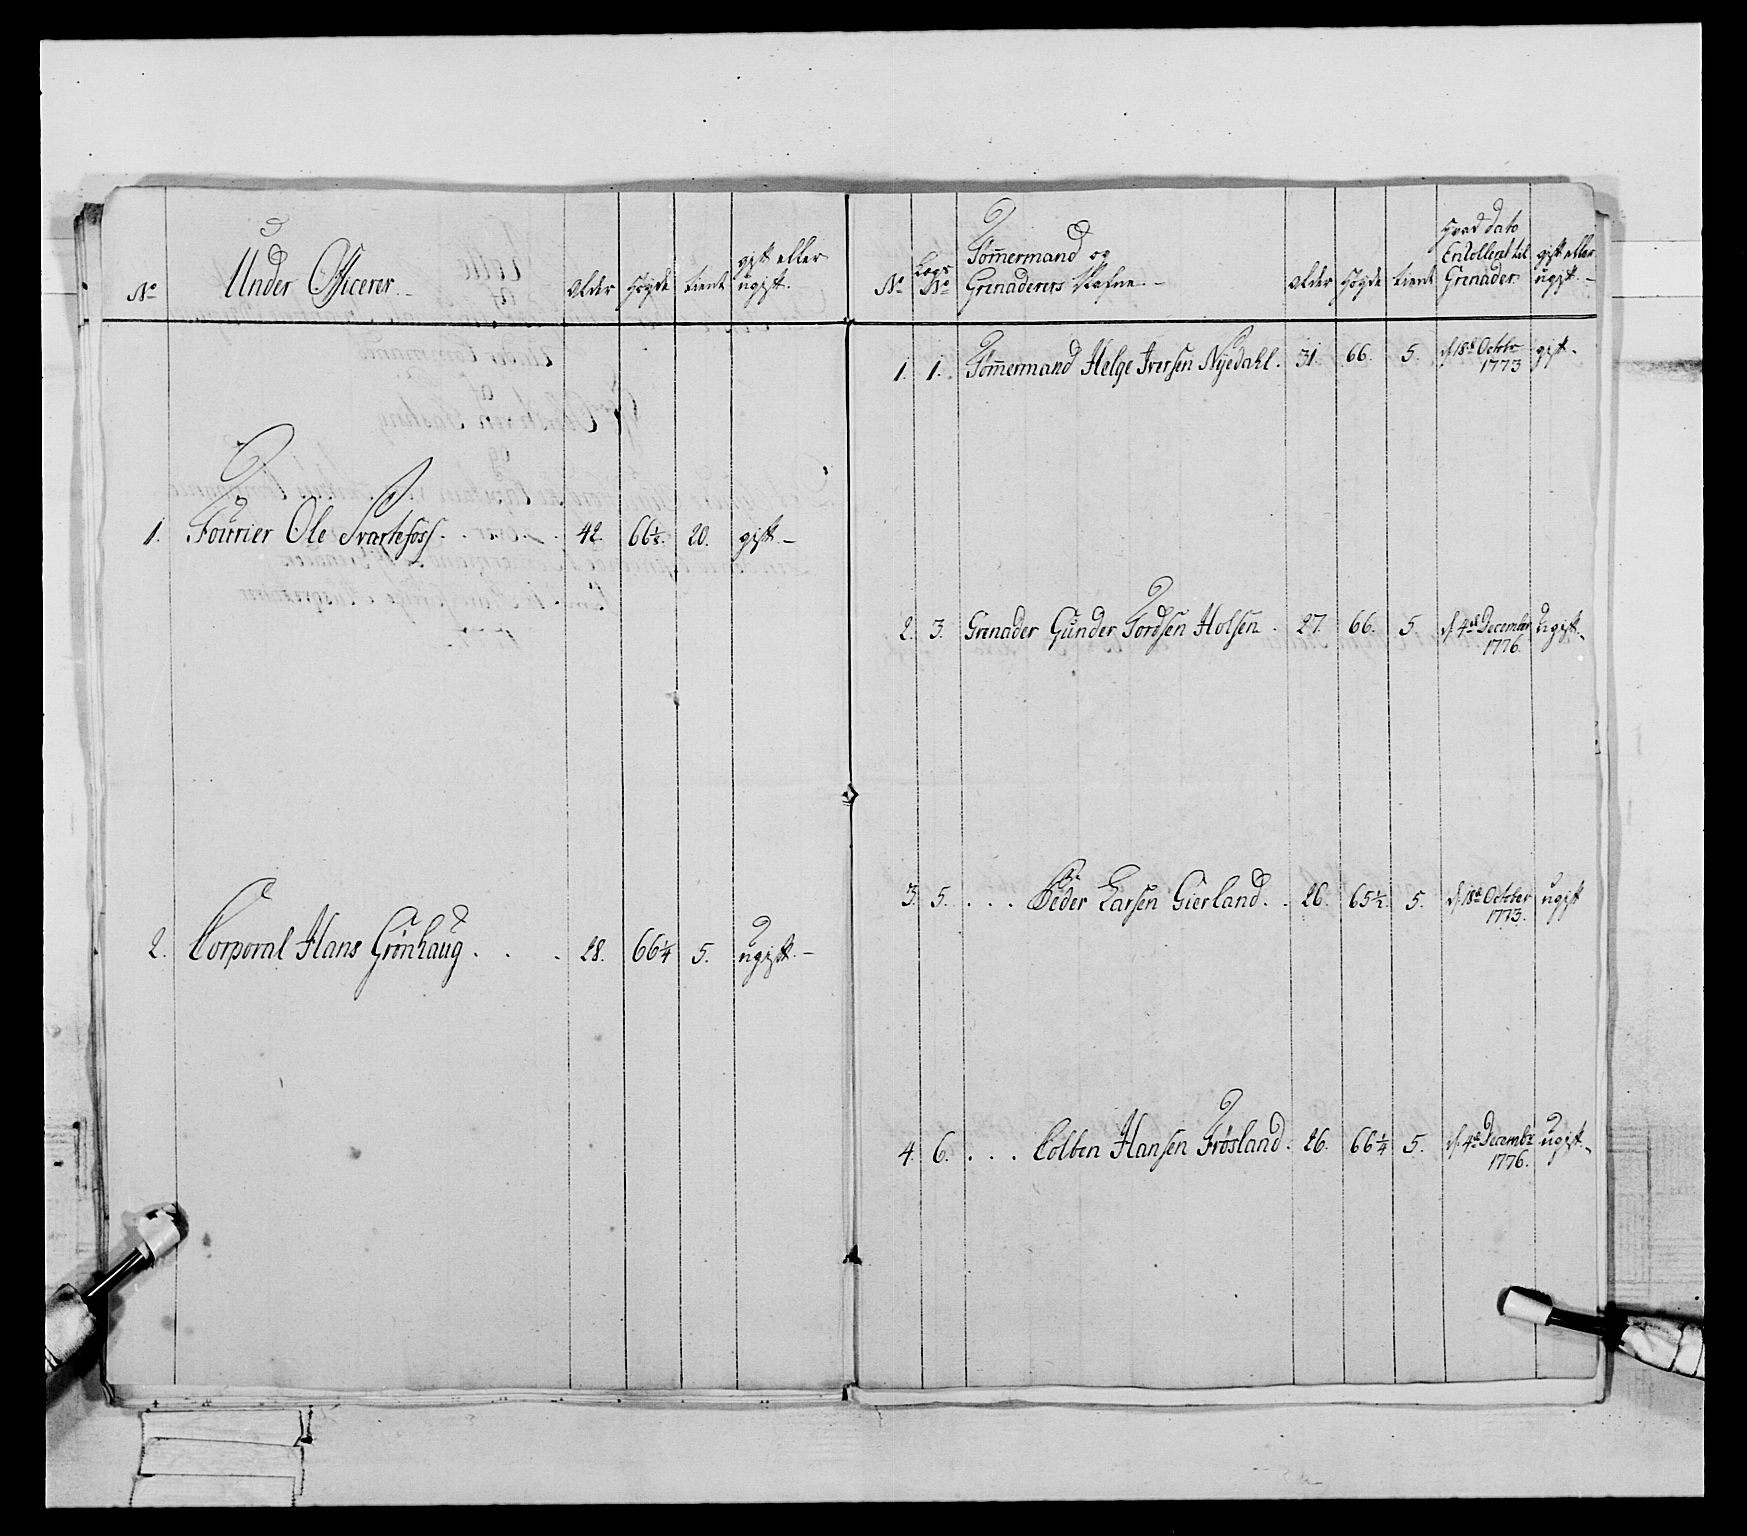 No Under Officerer Alder Høyde tient gift eller ugift.
1. Fourier Ole Svartefoss . . . 42. 66½. 20. gift
2. Corporal Hans Grönhaug . . . 28. 66¼ 5. ugift
No Legs No Tömermand og Grenaderers Nafne. Alder Høyde tient Hvad dato Enrollert til Grenader gift eller ugift.
1. 1. Tömermand Helge Iversen Nyedahl. 31. 66. 5. d. 18de Octbr 1773 gift.
2. 3. Grenader Gunder Tordsen Holsen. 27. 66. 5. d. 4de December 1776. ugift
3. 5. . . . Peder Larsen Gierland. . 26. 65½. 5. d. 18de October 1773. ugift
4. 6. . . . Colben Hansen Frösland. 26. 66¼ 5. d. 4de Decembr 1776. ugift